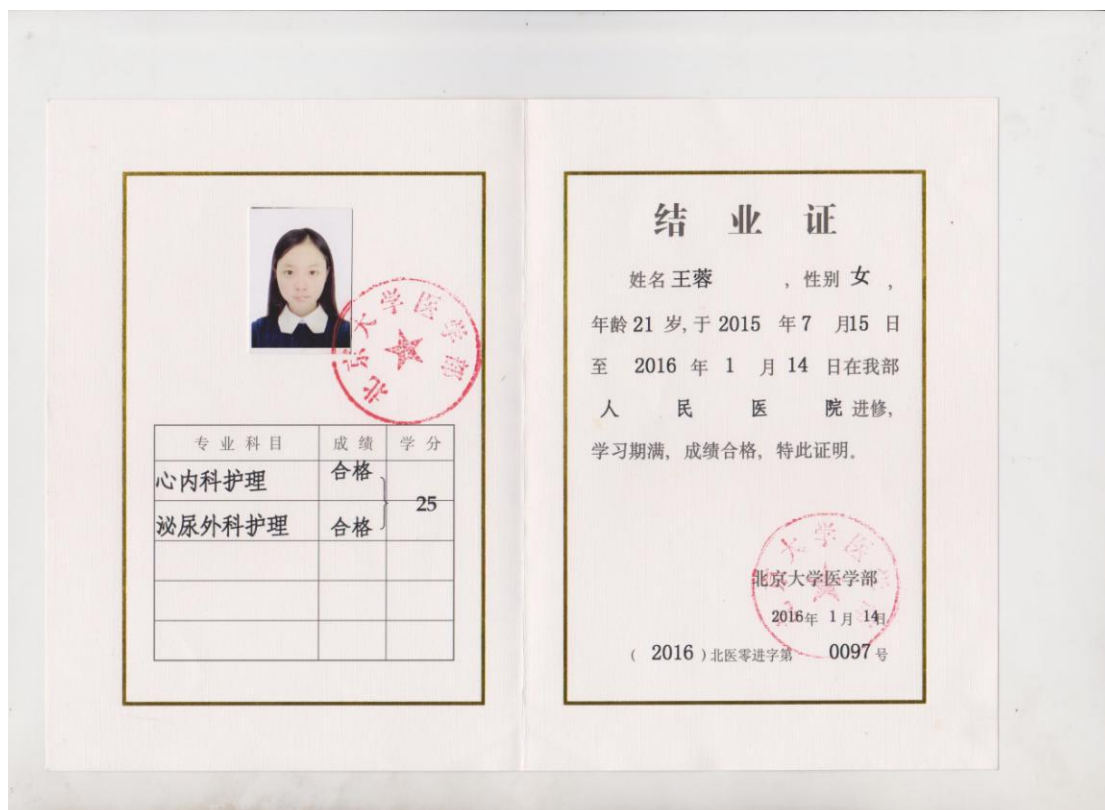 北京大学医学部
专业科目 成绩 学分
心内科护理 合格
25
泌尿外科护理 合格
结业证
姓名 王蓉 ,性别 女 ,
年龄 21 岁,于 2015 年 7 月 15 日
至 2016 年 1 月 14 日在我部
人民医院 进修,
学习期满, 成绩合格, 特此证明。
北京大学医学部
北京大学医学部
2016年 1月 14日
( 2016 )北医零进字第 0097 号